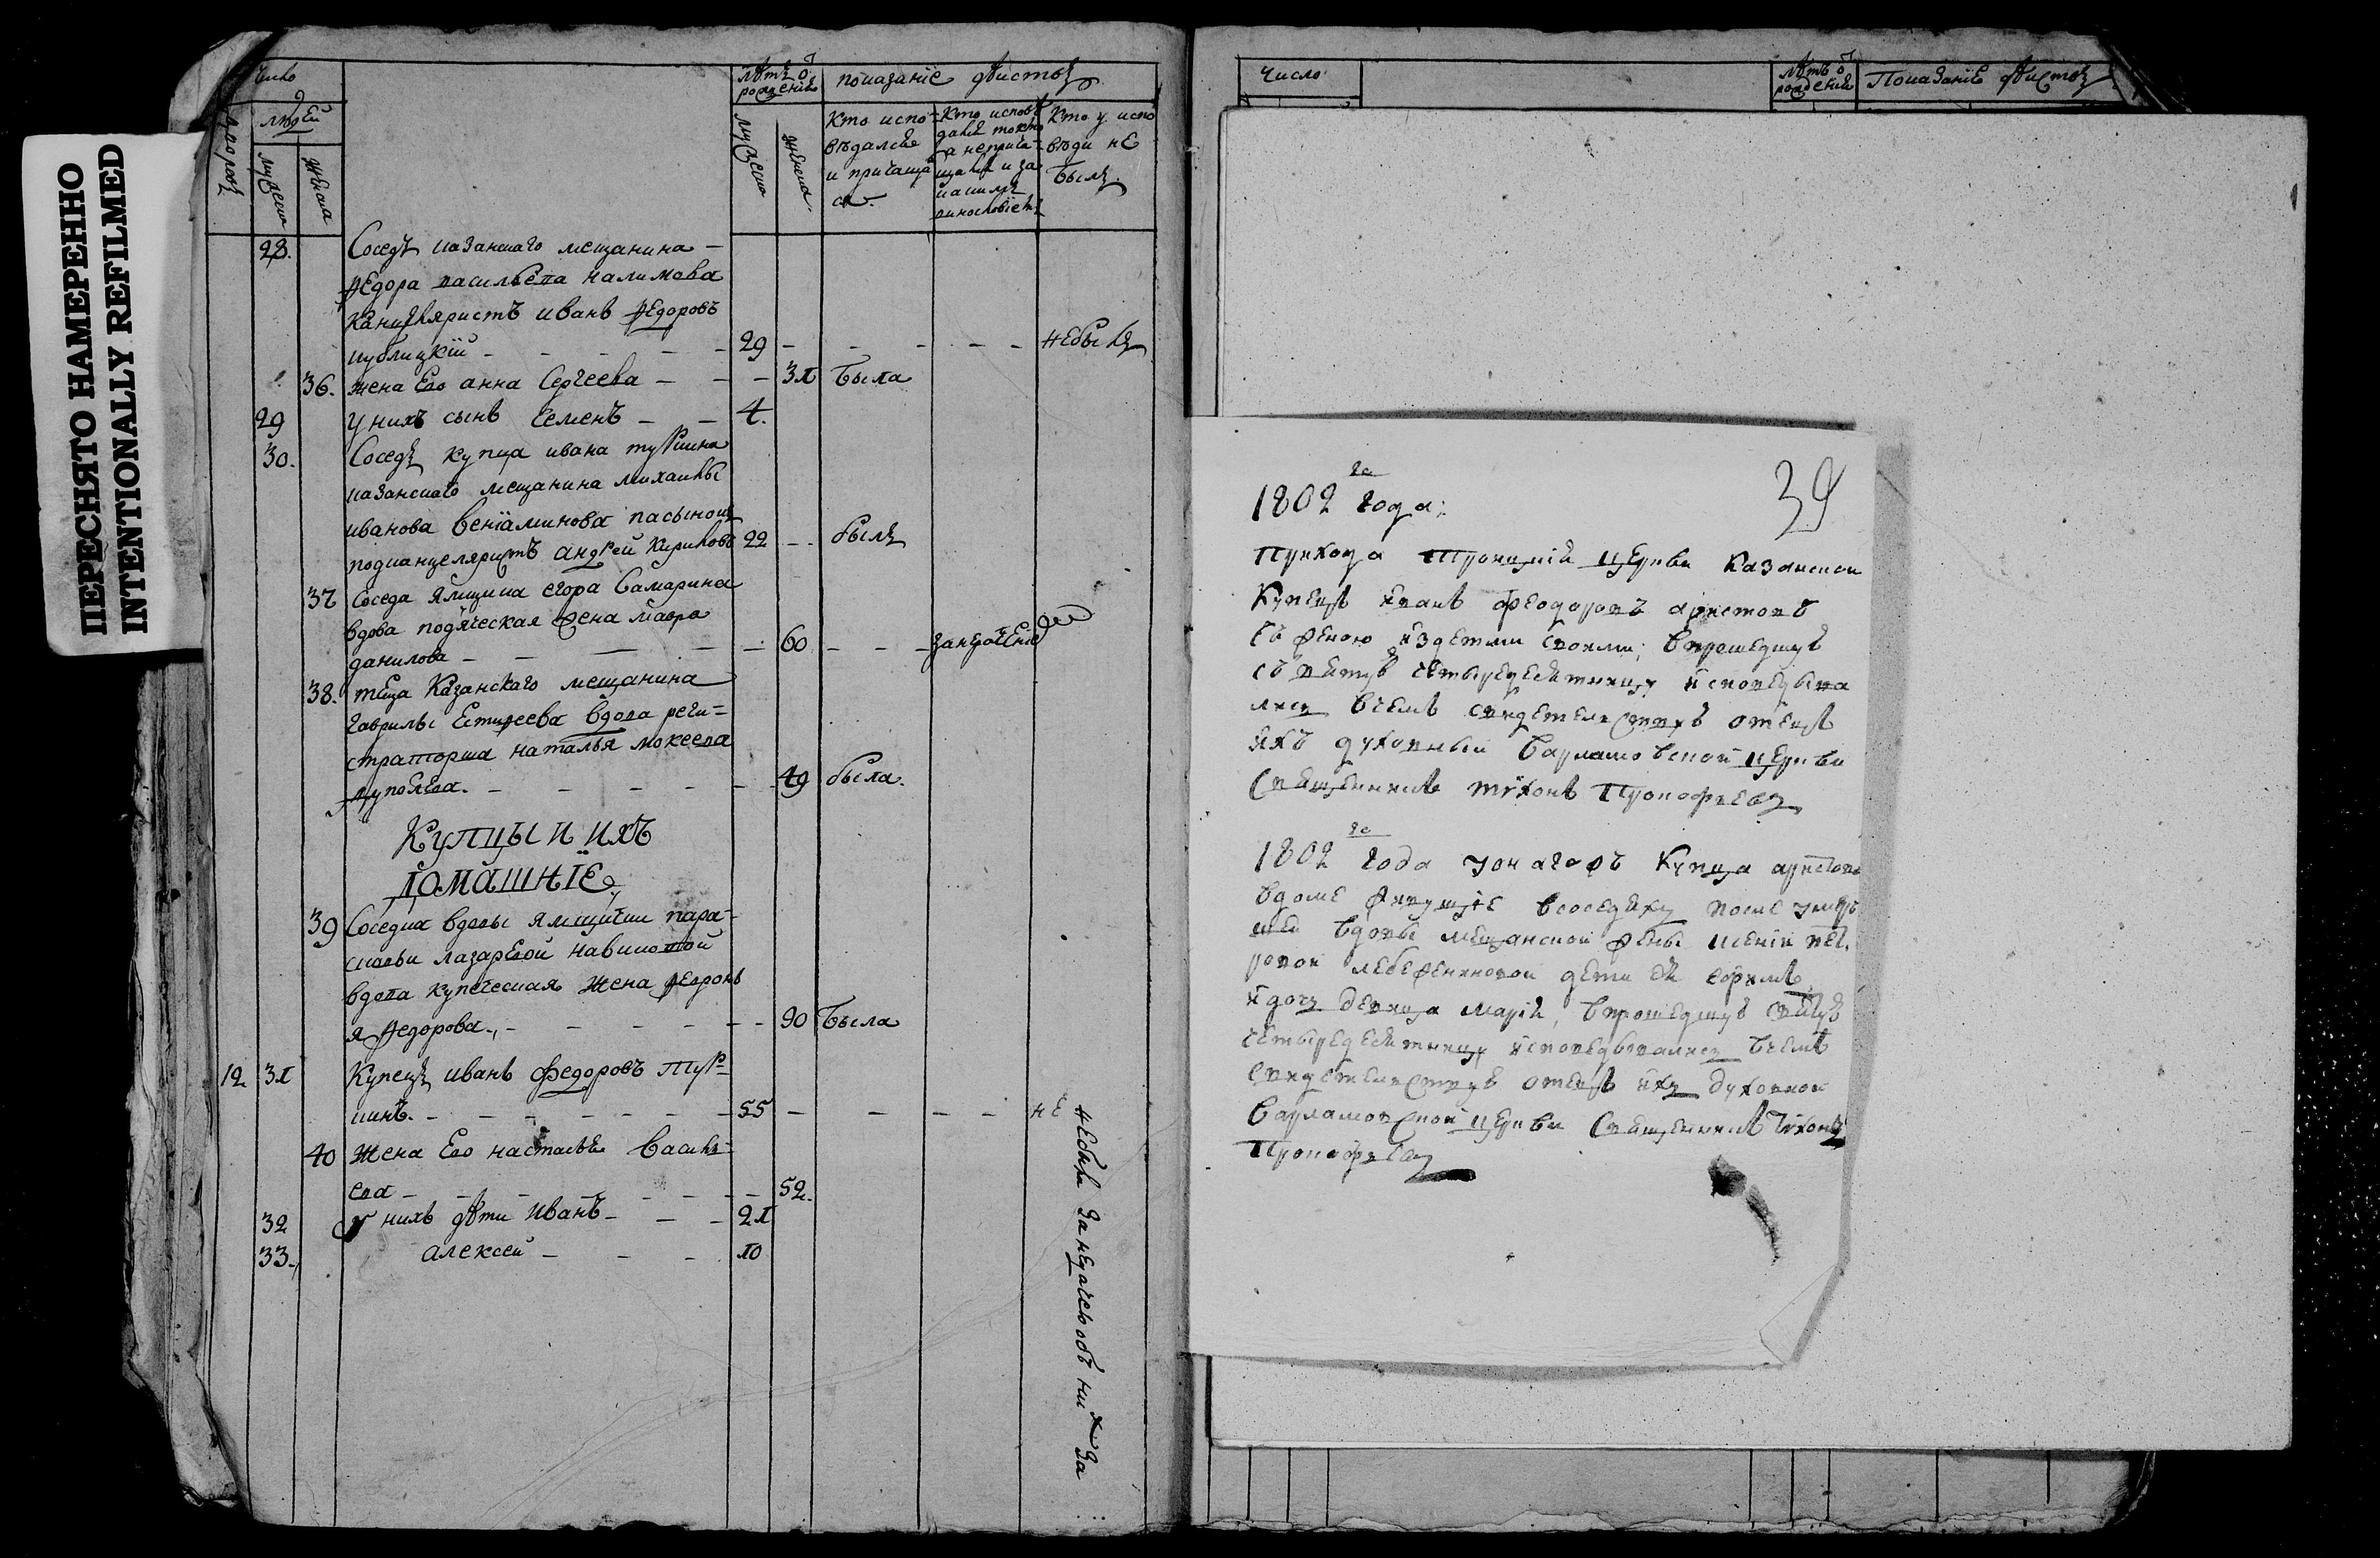 ПЕРЕСНЯТО НАМЕРЕННО
INTENTIONALLY REFILMED
Число
людей
дворовъ
мужеска
женска
лѣтъ ѿ
рождения
мужеска
женска
показанїе дѣйства
Кто испо-
ведалсѧ
и причаща
сѧ.
Кто испове
далсѧ токмо
а неприча-
щалсѧ и за
какимъ
винословїемъ
Кто у испо
веди не
былъ.
28. Соседъ казанскаго мещанина –
федора васильева налимова
Канцеляристъ иванъ федоровъ
29 – – – – – небылъ
36. жена Его анна Сергеева – – – 31 была
29 у нихъ сынъ семенъ – – 4.
30. Соседъ купца ивана
казанскаго мещанина михаилы
иванова венїаминова пасынокъ
подканцеляристъ андрей Кириловъ 22 – – былъ
37 соседа ямщика егора самарина
вдова подъяческая жена мавра
данилова – – – – – 60 – – –
38. теща Казанскаго мещанина
гаврилы вдова реги-
страторша наталья мокеева
– – – – – – 49 была.
Купцы и ихъ
домашнїе
39 Соседка вдовы ямщички пара-
сковьи лазаревой
вдова купеческая жена феврон
я федорова., – – – – – – 90 была
12 31 Купецъ иванъ федоровъ
– – – – – – – 55 – – – – не
40 жена Его настасья Василь-
ева – – – – – – – 52.
32 у нихъ дѣти иванъ – – – 21
33., алексей – – – 10
Число
лѣтъ ѿ
рождений
Показанїе дѣйства
39
1802 го года;
прихода троицкїй церкви казанской
купецъ иванъ феодоровъ аристовъ
съ женою и здетми своими; впрошедшую
святую четыредесятницу исповедыва
лись в чемъ свидетельствую отецъ
ихъ духовный варламовской церкви
священникъ тихонъ Прокофьевъ
1802 го года купца аристова
вдоме живущїе всоседяхъ после умер
шей вдовы мещанской жены ксенїи пет
ровой дети ея
и дочь девица марїя, впрошедшую святую
четыредесятницу исповедывались в чемъ
свидетельствую отецъ ихъ духовной
варламовской церкви священникъ тихонъ
Прокофьевъ